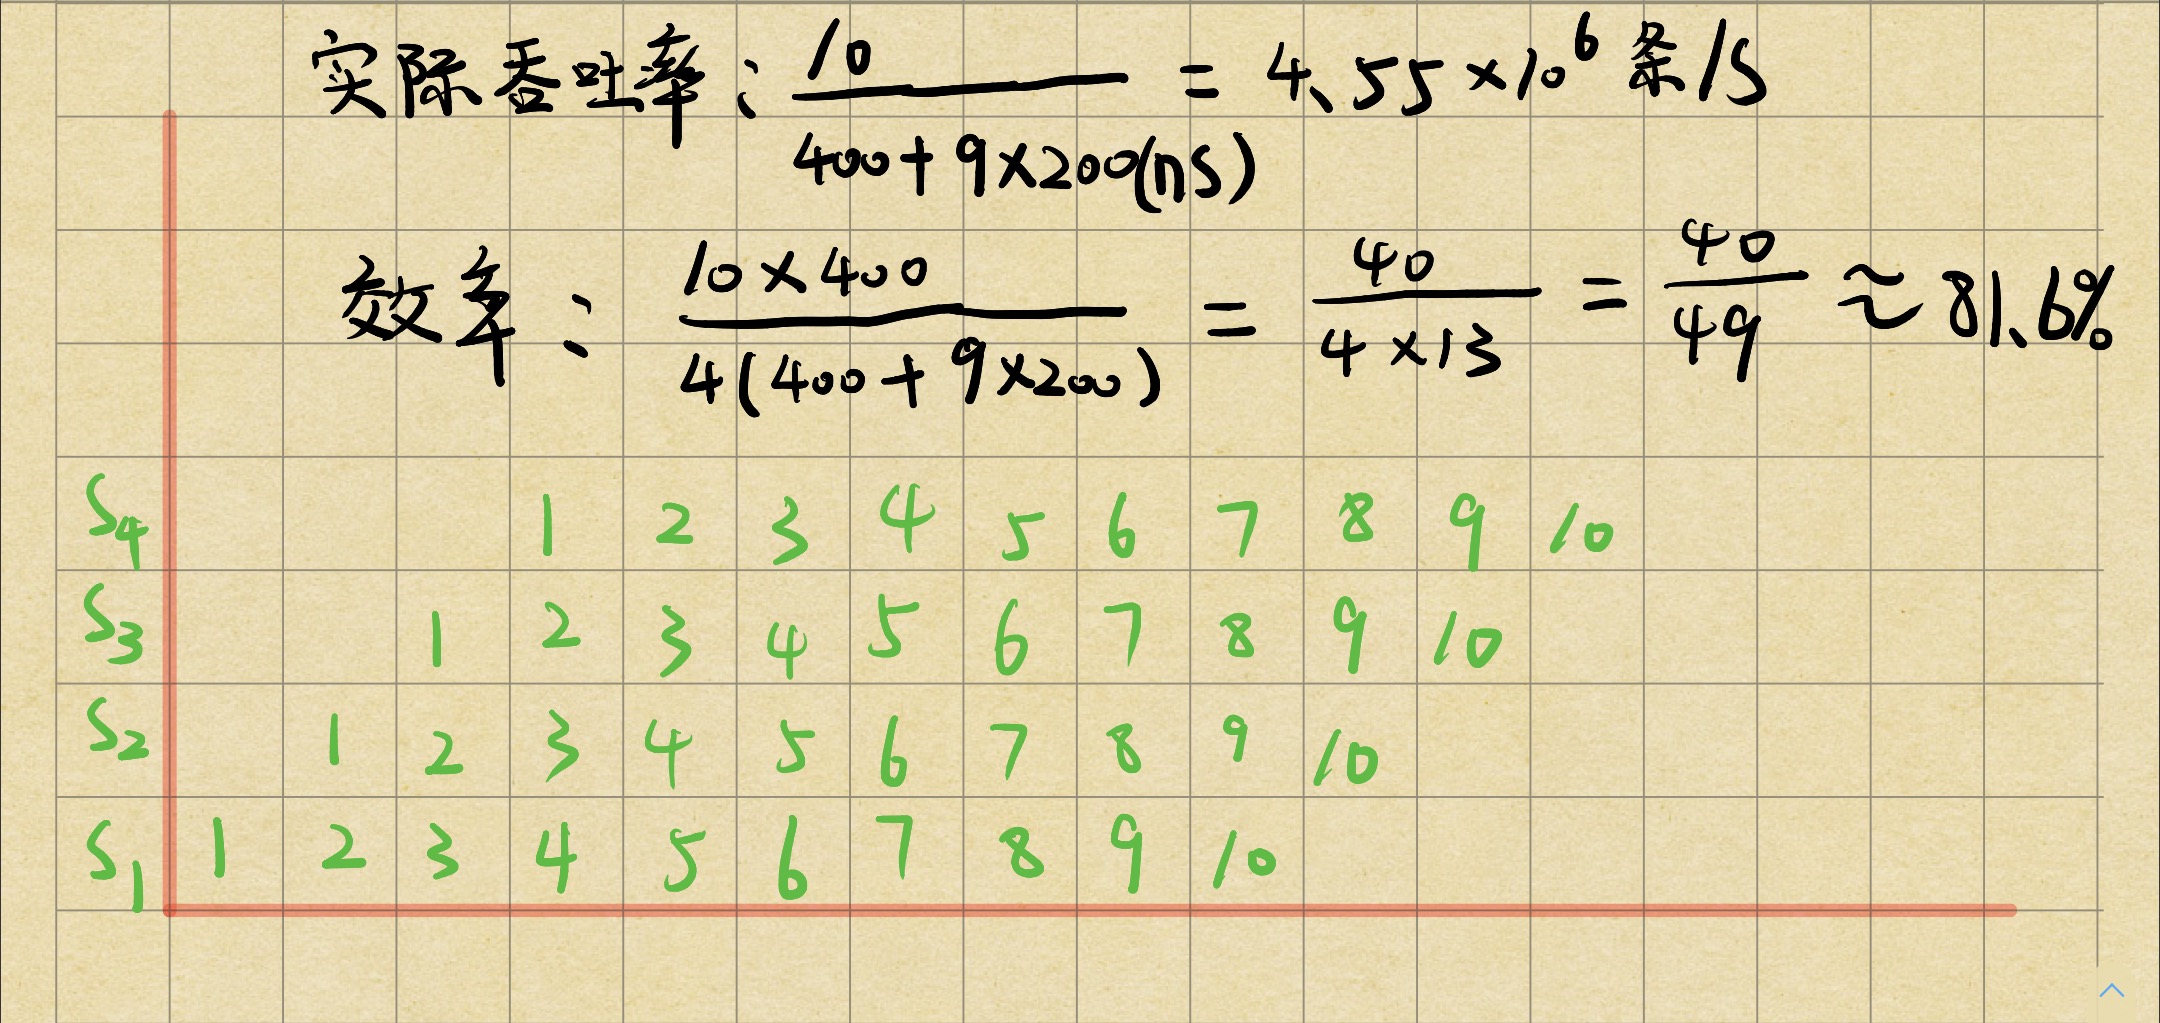 实际吞吐率: 10/(400+9×200(ns)) = 4.55×10^6 条/S
效率: (10×400)/(4(400+9×200)) = 40/(4×13) = 40/49 ≈ 81.6%
S4 1 2 3 4 5 6 7 8 9 10
S3 1 2 3 4 5 6 7 8 9 10
S2 1 2 3 4 5 6 7 8 9 10
S1 1 2 3 4 5 6 7 8 9 10